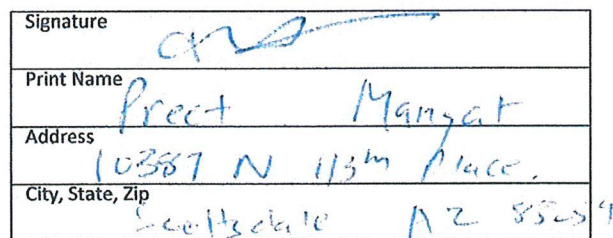 Signature
Print Name
Preet Mangat
Address
10387 N 113th Place.
City, State, Zip
Scottsdale AZ 85259